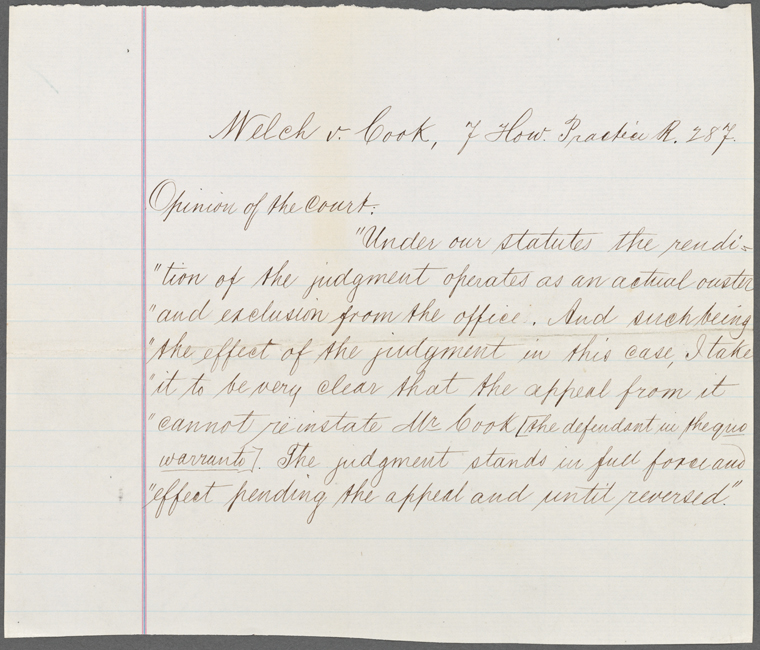 Welch v. Cook, 7 How. Practice R. 287.
Opinion of the court:
"Under our statutes the rendi-
"tion of the judgment operates as an actual ouster
"and exclusion from the office. And such being
"the effect of the judgment in this case, I take
"it to be very clear that the appeal from it
"cannot reinstate Mr Cook [the defendant in the quo
warranto]. The judgment stands in full force and
"effect pending the appeal and until reversed."